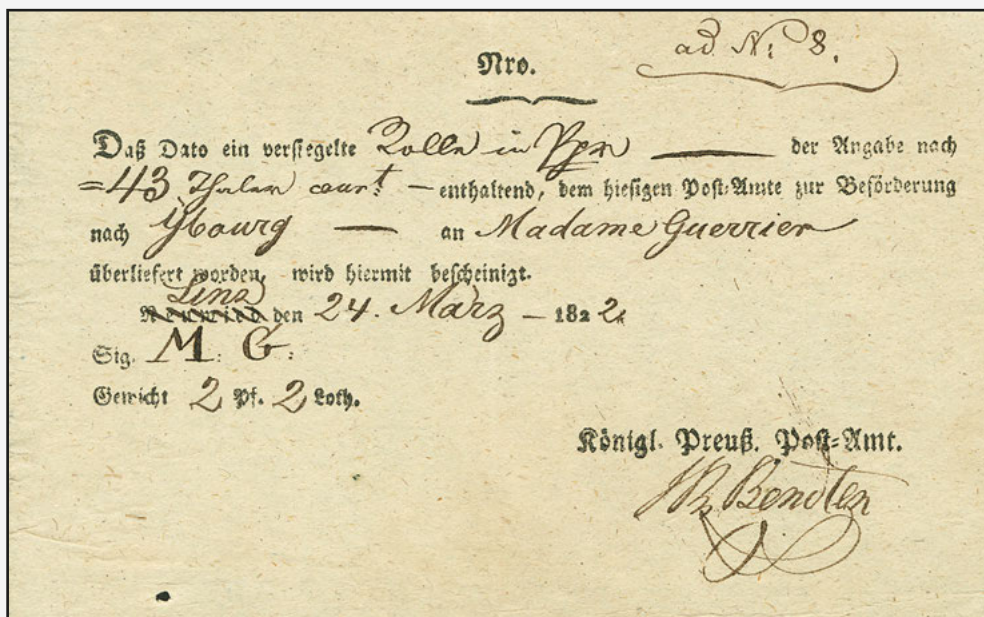 ad N: 8.
Nro.
Daß Dato ein versiegelte Rolle in Ppr — der Angabe nach
=43 Thaler cour.t — enthaltend, dem hiesigen Post-Amte zur Beförderung
nach — an Madame Guerrier
überliefert worden, wird hiermit bescheinigt.
Linz
Neuwied den 24. März — 1822.
Sig. M: G:
Gewicht 2 Pf. 2 Loth.
Königl. Preuß. Post-Amt.